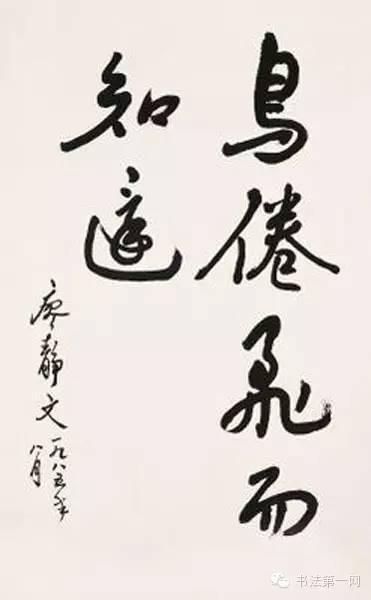 鳥倦飛而
知還
廖静文
一九八五年
八月
书法第一网